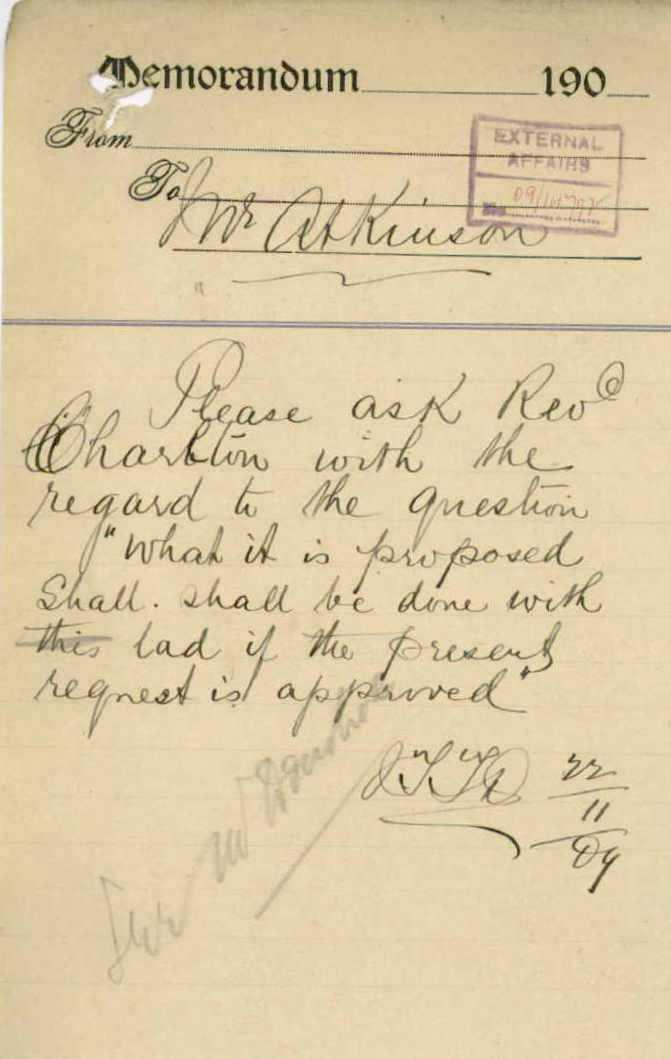 Memorandum 190
From
EXTERNAL
AFFAIRS
To
Mr Atkinson
Please ask Revd
Charlton with the
regard to the question
"What it is proposed
Shall. shall be done with
this lad if the present
request is approved"
22
11
09